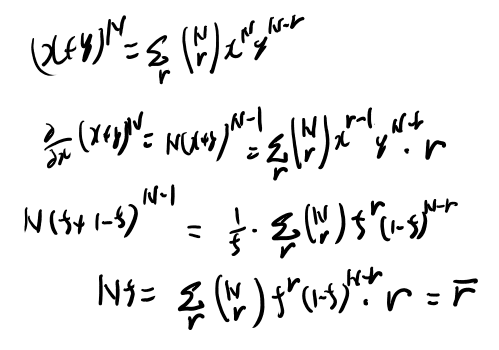 (x+y)^N = Σ_r (N r) x^N y^{N-r}
∂/∂x (x+y)^N = N(x+y)^{N-1} = Σ_r (N r) x^{r-1} y^{N-r} · r
N(f+1-f)^{N-1} = 1/f · Σ_r (N r) f^r (1-f)^{N-r}
Nf = Σ_r (N r) f^r (1-f)^{N-r} · r = r̄